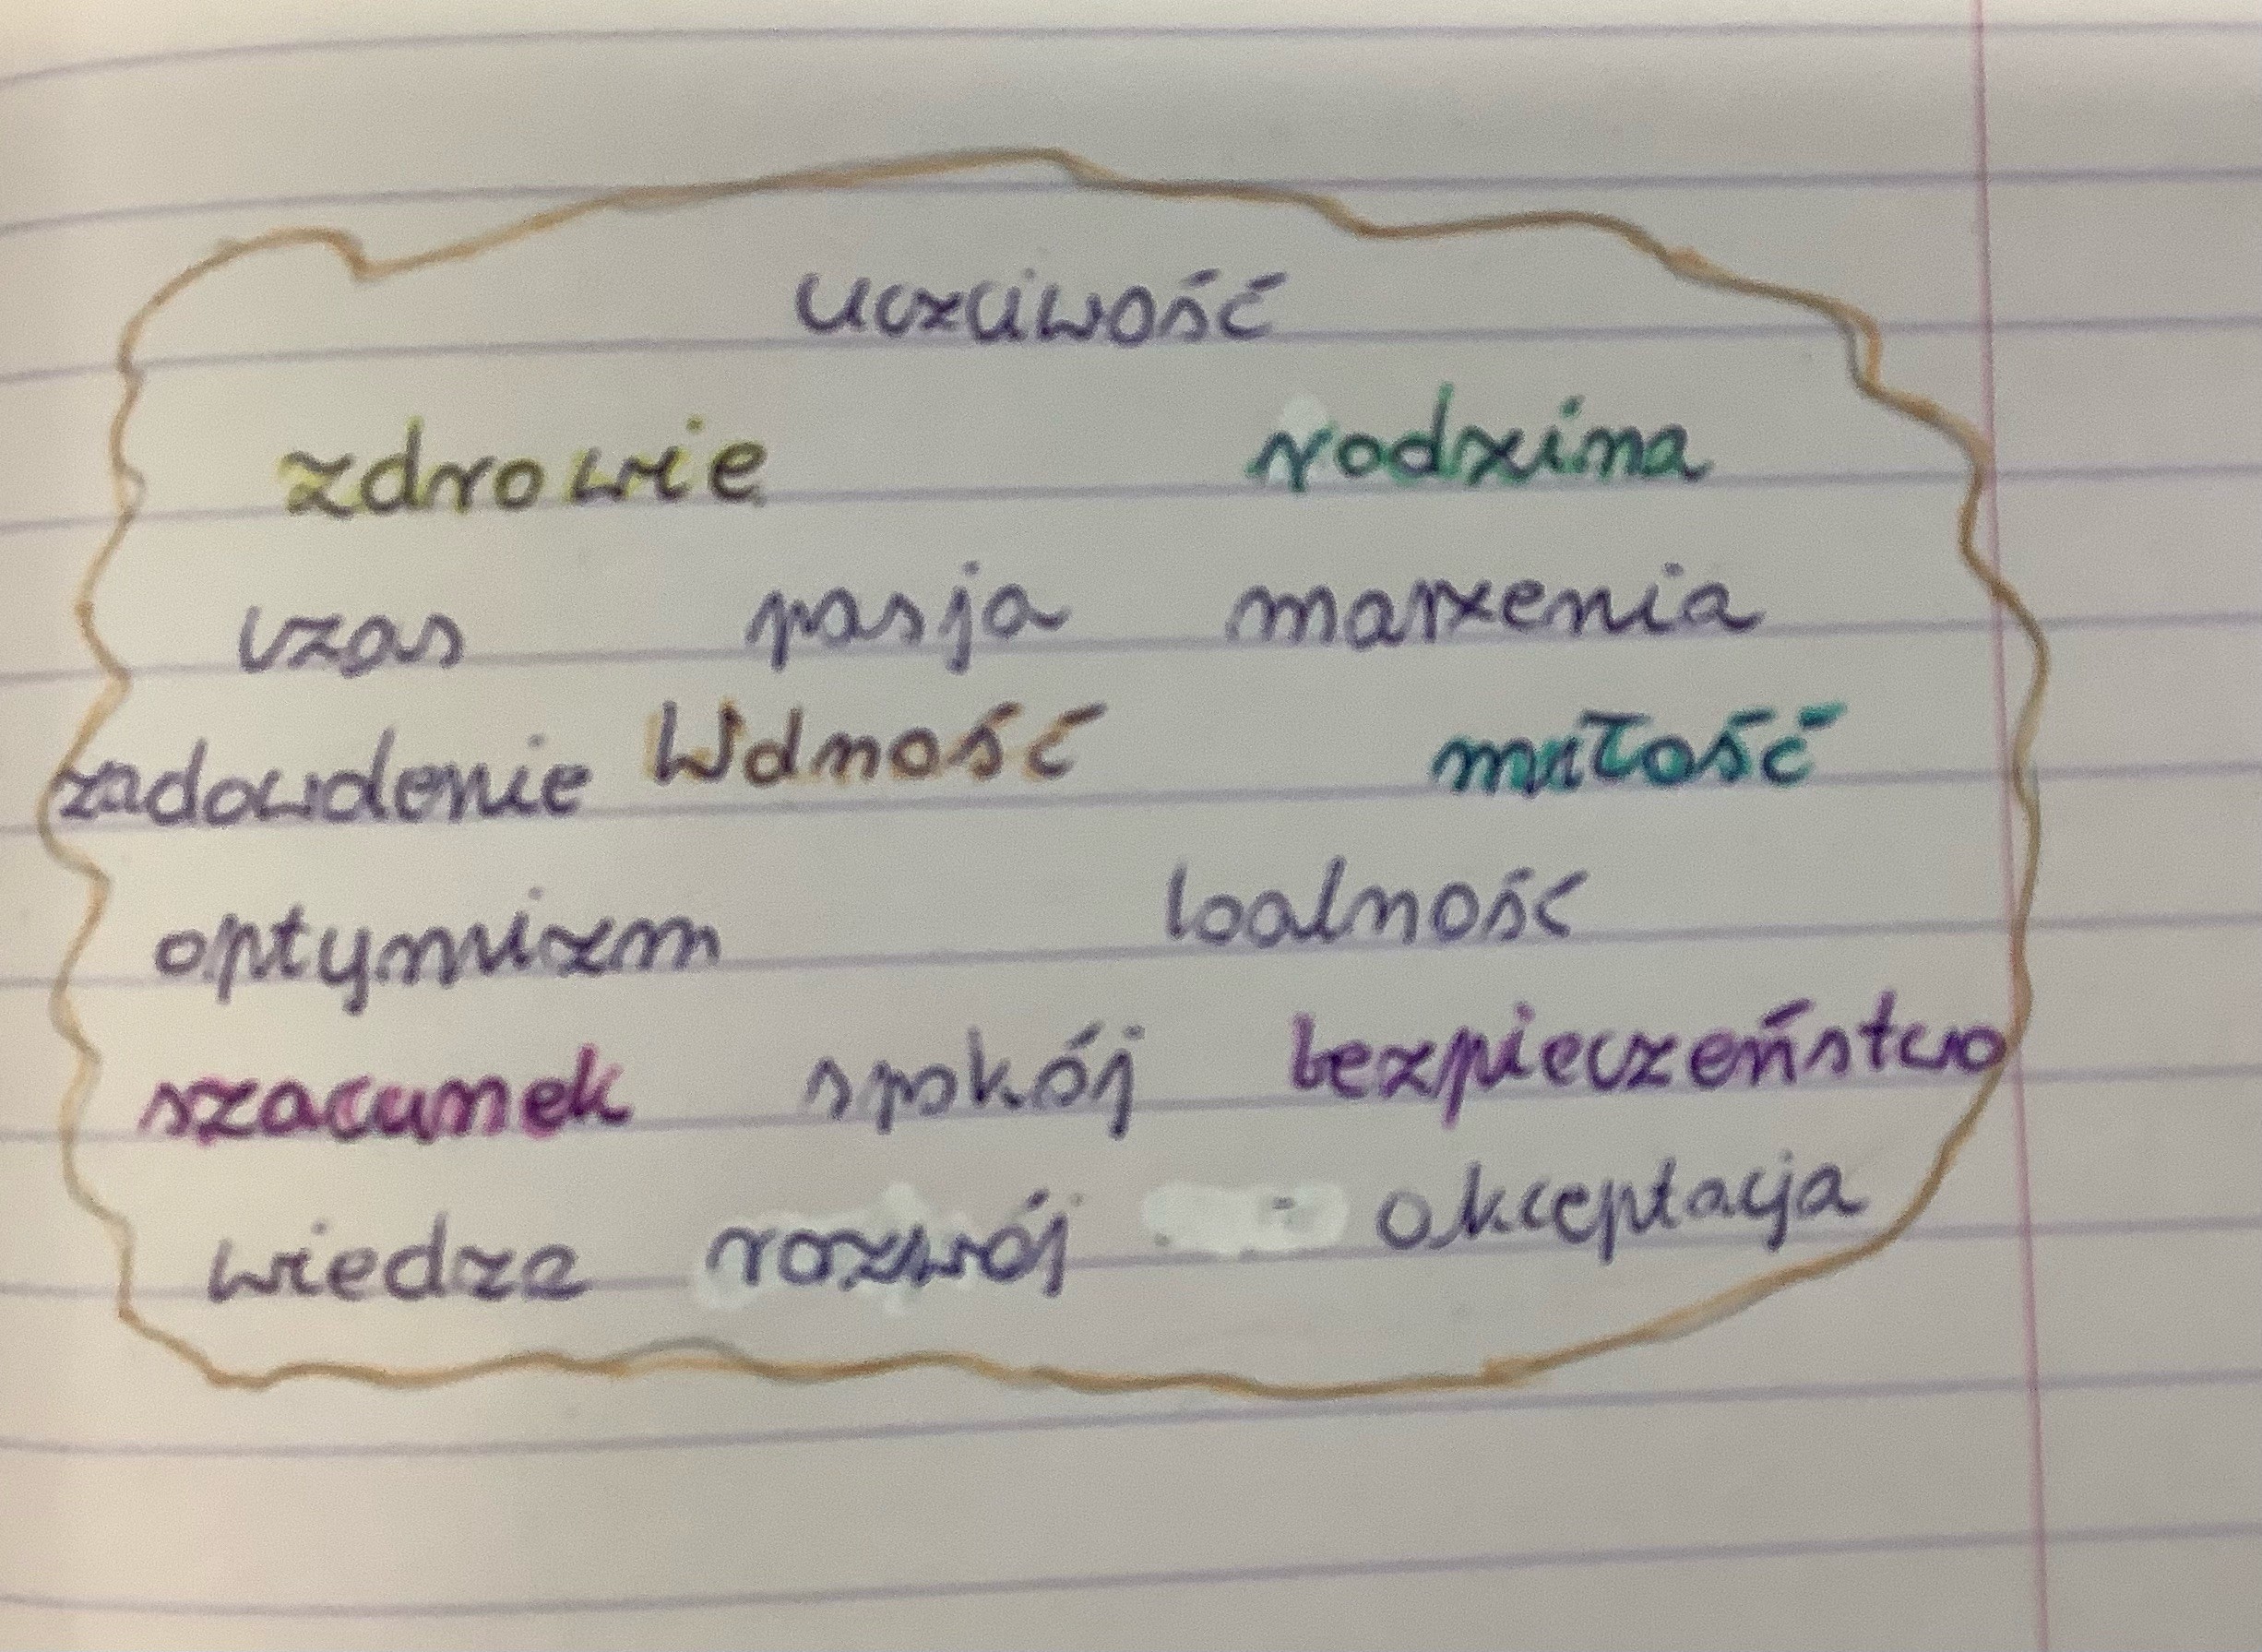 uczciwość
zdrowie rodzina
czas pasja marzenia
zadowolenie Wolność miłość
optymizm loalność
szacunek spokój bezpieczeństwo
wiedza rozwój akceptacja